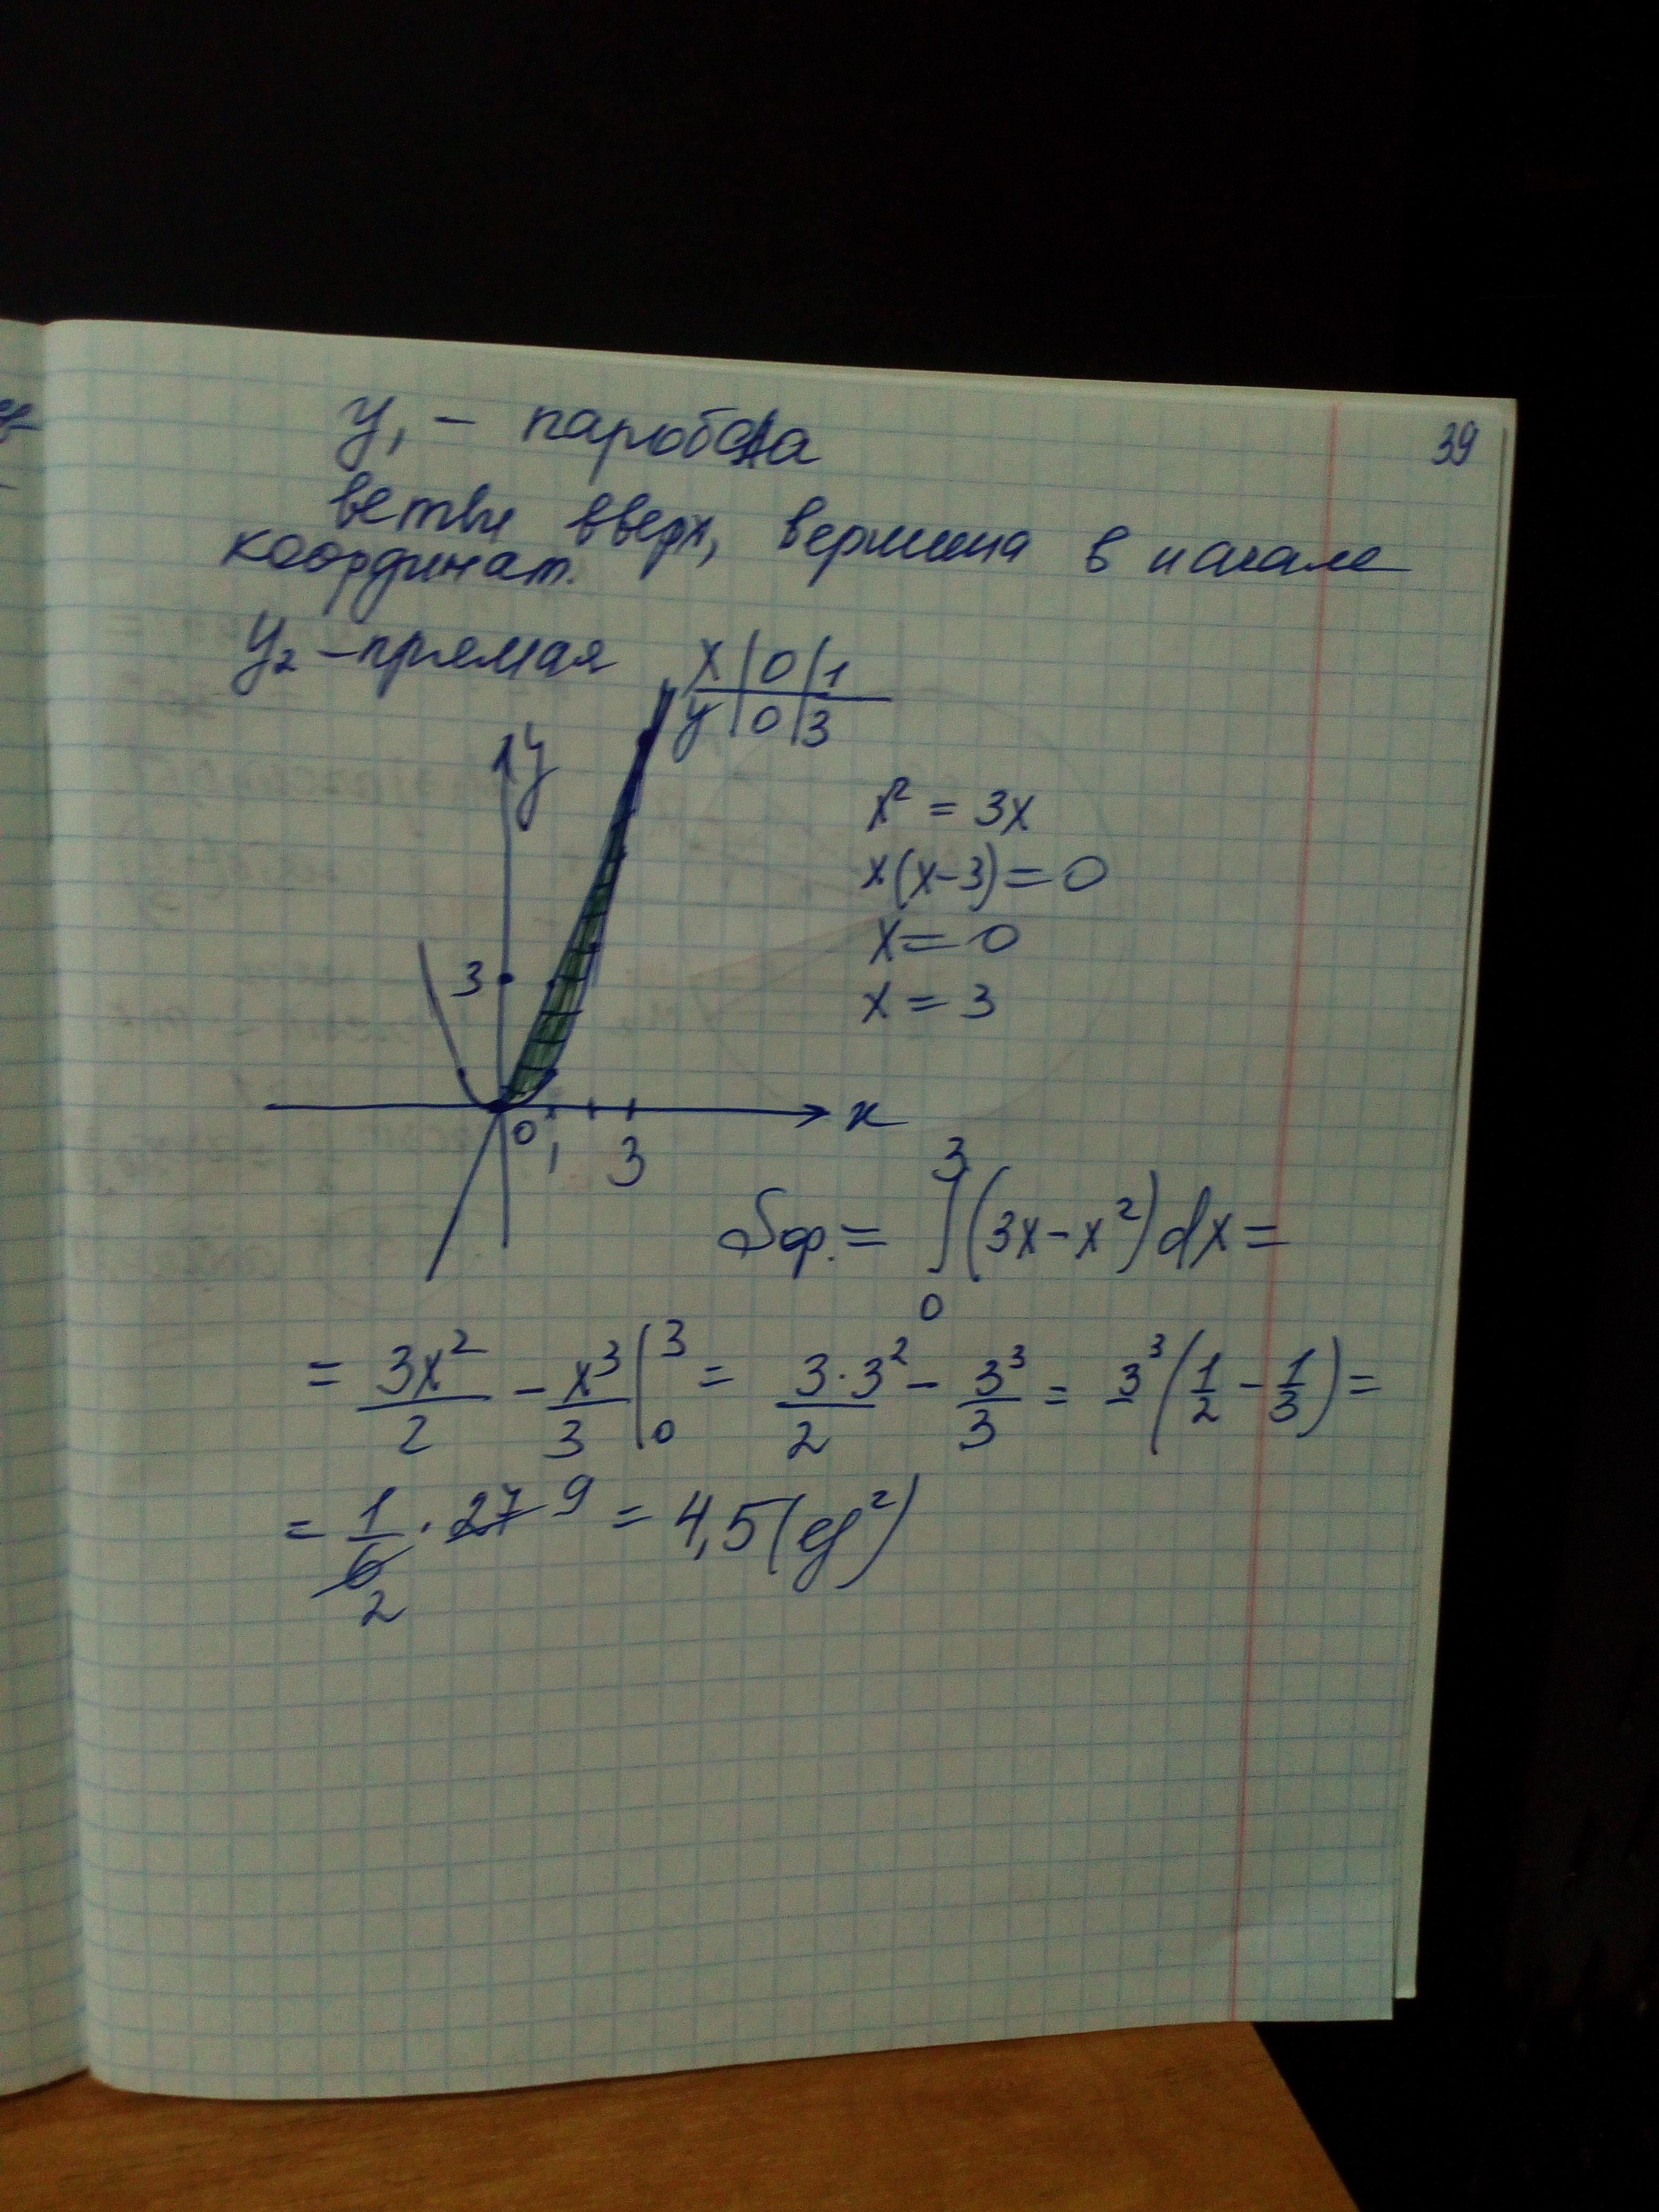 39
y₁ – парабола
ветви вверх, вершина в начале
координат.
y₂ – прямая
x | 0 | 1
y | 0 | 3
y
x² = 3x
x(x-3) = 0
x = 0
x = 3
3
0 1 3 x
Sф. = ∫₀³ (3x - x²) dx =
= 3x²/2 - x³/3 |₀³ = 3·3²/2 - 3³/3 = 3³(1/2 - 1/3) =
= 1/6 · 27 9 = 4,5 (ед²)
2